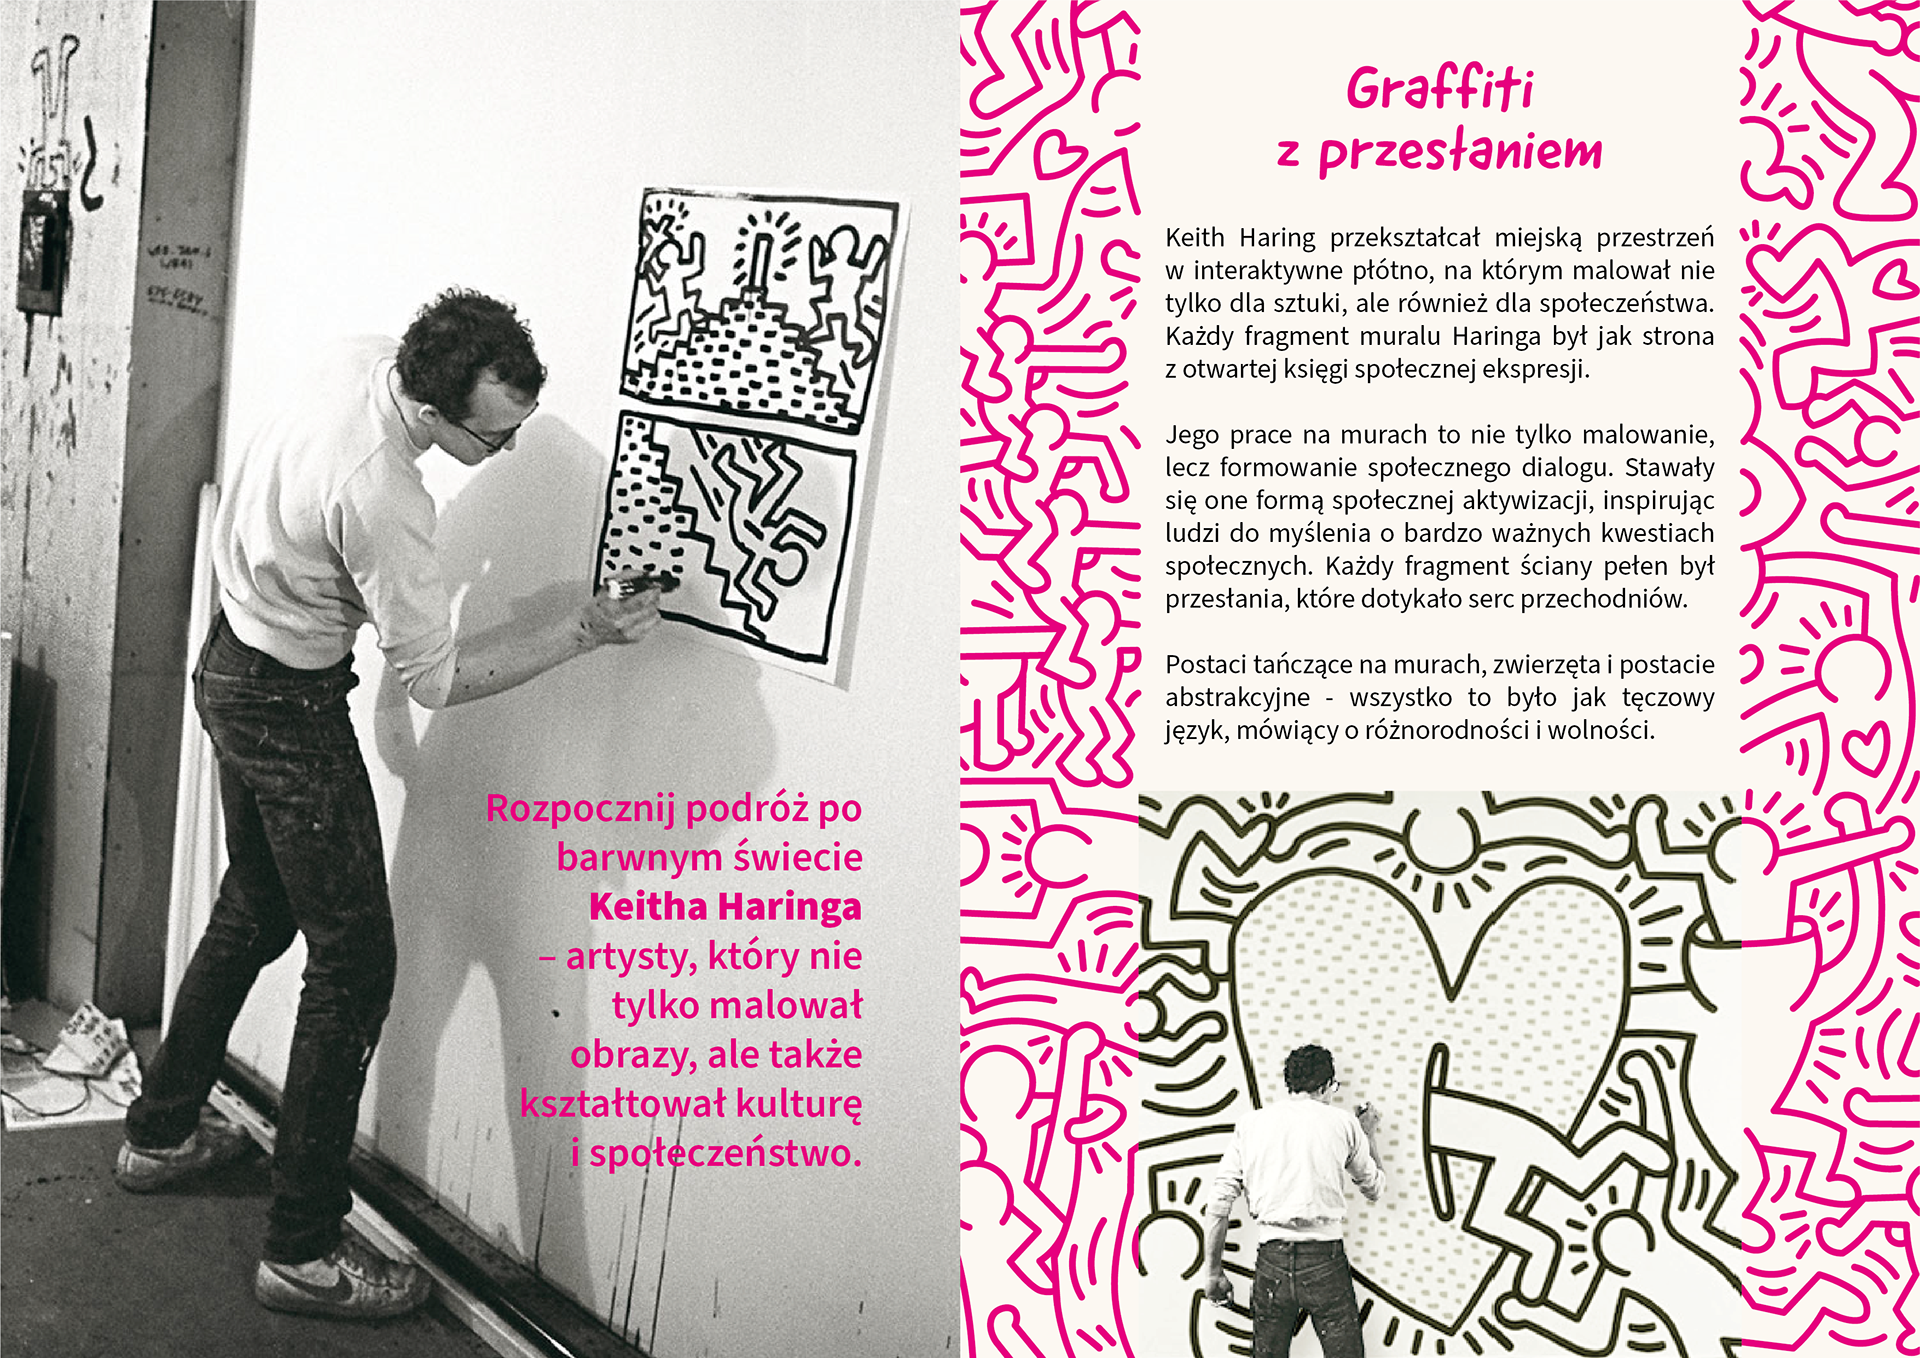 Rozpocznij podróż po
barwnym świecie
Keitha Haringa
– artysty, który nie
tylko malował
obrazy, ale także
kształtował kulturę
i społeczeństwo.
Graffiti
z przesłaniem
Keith Haring przekształcał miejską przestrzeń
w interaktywne płótno, na którym malował nie
tylko dla sztuki, ale również dla społeczeństwa.
Każdy fragment muralu Haringa był jak strona
z otwartej księgi społecznej ekspresji.
Jego prace na murach to nie tylko malowanie,
lecz formowanie społecznego dialogu. Stawały
się one formą społecznej aktywizacji, inspirując
ludzi do myślenia o bardzo ważnych kwestiach
społecznych. Każdy fragment ściany pełen był
przesłania, które dotykało serc przechodniów.
Postaci tańczące na murach, zwierzęta i postacie
abstrakcyjne - wszystko to było jak tęczowy
język, mówiący o różnorodności i wolności.